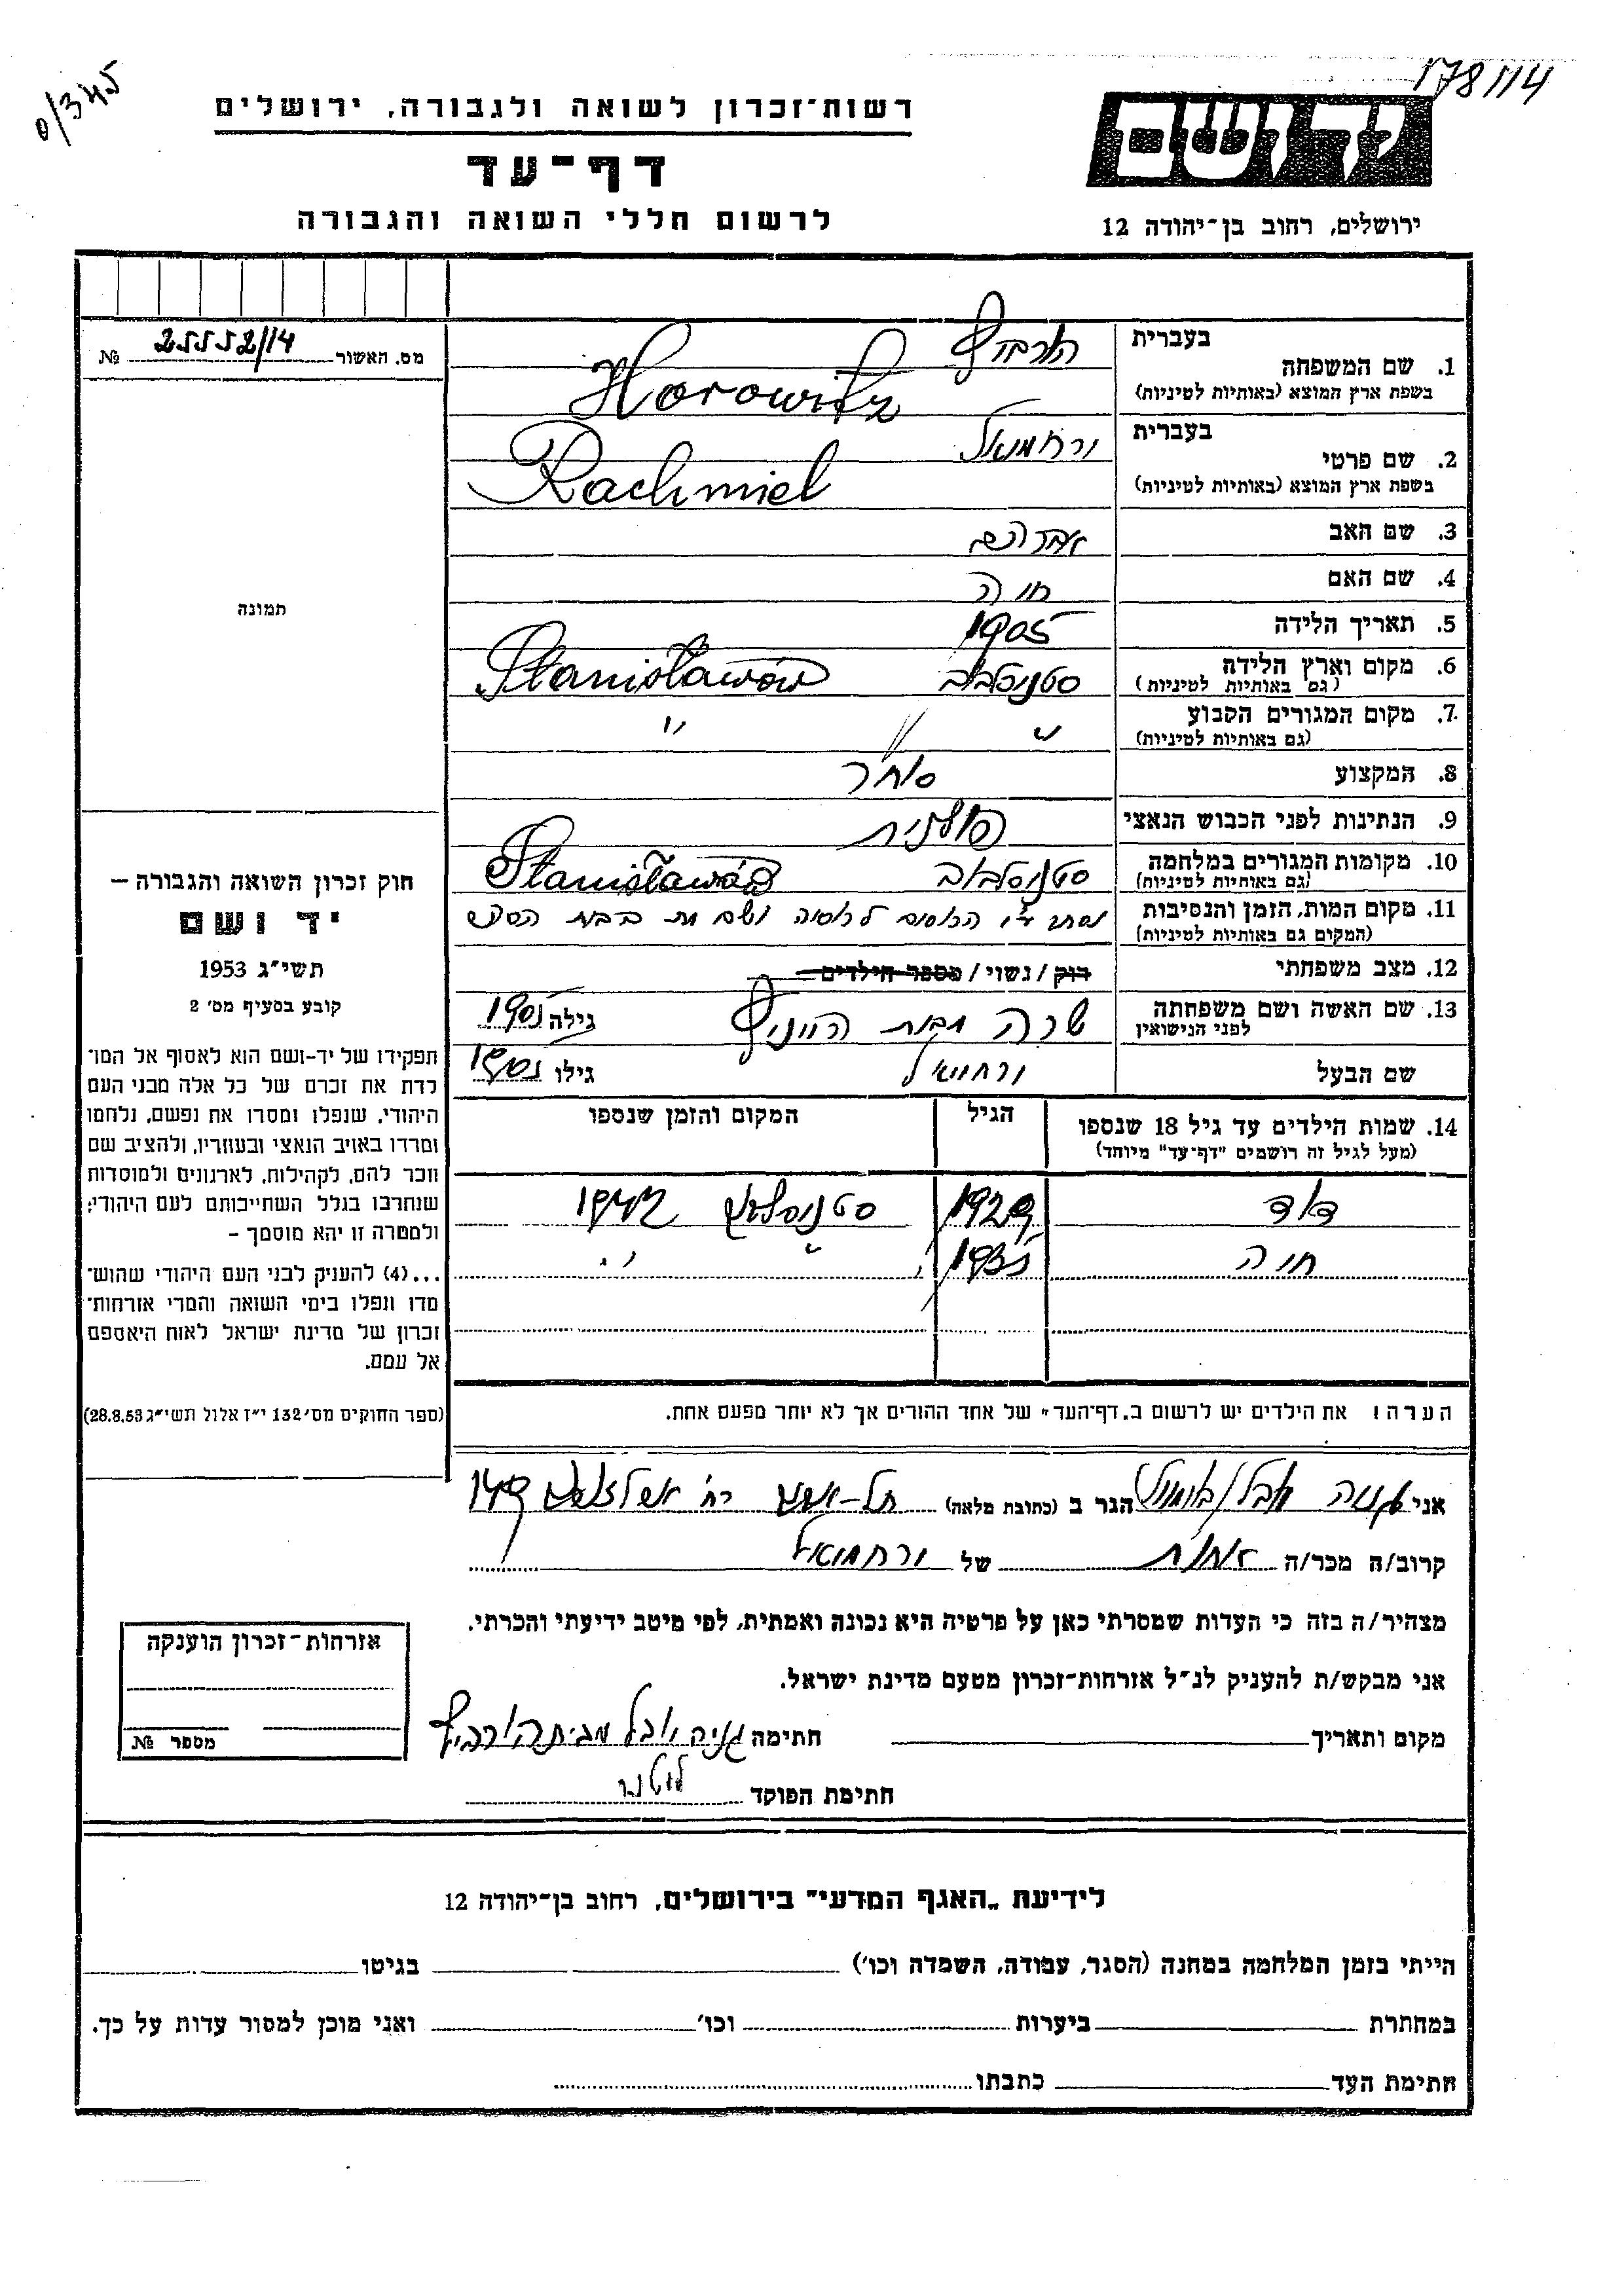 178/14
0/345
רשות־זכרון לשואה ולגבורה, ירושלים
ידושם
דף־עד
לרשום חללי השואה והגבורה
ירושלים, רחוב בן־יהודה 12
מס. האשור 25552/14 №
תמונה
חוק זכרון השואה והגבורה –
יד ושם
תשי״ג 1953
קובע בסעיף מס׳ 2
תפקידו של יד-ושם הוא לאסוף אל המו־
לדת את זכרם של כל אלה מבני העם
היהודי, שנפלו ומסרו את נפשם, נלחמו
ומרדו באויב הנאצי ובעוזריו, ולהציב שם
וזכר להם, לקהילות, לארגונים ולמוסדות
שנחרבו בגלל השתייכותם לעם היהודי;
ולמטרה זו יהא מוסמך –
...(4) להעניק לבני העם היהודי שהוש־
מדו ונפלו בימי השואה והמרי אזרחות־
זכרון של מדינת ישראל לאות היאספם
אל עמם.
(ספר החוקים מס׳ 132 י״ז אלול תשי״ג 28.8.53)
בעברית
1. שם המשפחה הורביץ
בשפת ארץ המוצא (באותיות לטיניות) Horowitz
בעברית
2. שם פרטי ירחמיאל
בשפת ארץ המוצא (באותיות לטיניות) Rachmiel
3. שם האב אברהם
4. שם האם חוה
5. תאריך הלידה 1905
6. מקום וארץ הלידה סטניסלבוב Stanisławów
(גם באותיות לטיניות)
7. מקום המגורים הקבוע " "
(גם באותיות לטיניות)
8. המקצוע סוחר
9. הנתינות לפני הכבוש הנאצי פולנית
10. מקומות המגורים במלחמה סטניסלבוב Stanisławów
(גם באותיות לטיניות)
11. מקום המות, הזמן והנסיבות הרוסים לרוסיה ושם מת
(המקום גם באותיות לטיניות)
12. מצב משפחתי רוק / נשוי / מספר הילדים
13. שם האשה ושם משפחתה שרה מבית גילה 1905
לפני הנישואין
שם הבעל ירחמיאל גילו 1905
14. שמות הילדים עד גיל 18 שנספו הגיל המקום והזמן שנספו
(מעל לגיל זה רושמים ״דף־עד״ מיוחד)
דוד 1929 סטניסלבוב 1942
חוה 1935 " "
הערה: את הילדים יש לרשום ב„דף־העד״ של אחד ההורים אך לא יותר מפעם אחת.
אני הגר ב (כתובת מלאה) תל-אביב רח׳ 149
קרוב/ה מכר/ה אחות של ירחמיאל
מצהיר/ה בזה כי העדות שמסרתי כאן על פרטיה היא נכונה ואמתית, לפי מיטב ידיעתי והכרתי.
אני מבקש/ת להעניק לנ״ל אזרחות־זכרון מטעם מדינת ישראל.
מקום ותאריך חתימה מבית הורביץ
חתימת הפוקד
אזרחות־זכרון הוענקה
מספר №
לידיעת „האגף המדעי״ בירושלים, רחוב בן־יהודה 12
הייתי בזמן המלחמה במחנה (הסגר, עבודה, השמדה וכו׳) בגיטו
במחתרת ביערות וכו׳ ואני מוכן למסור עדות על כך.
חתימת העד כתבתו